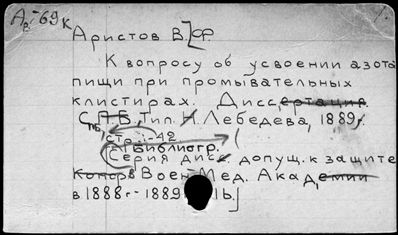 А2-69к
Аристов В. [Ф.
К вопросу об усвоении азота
пищи при промывательных
клистирах. Диссертация.
СПБ, Тип. Н. Лебедева, 1889г.
42
Библиогр.
(Серия дисс допущ. к защите
в Воен Мед. Академии
в 1888г - 1889